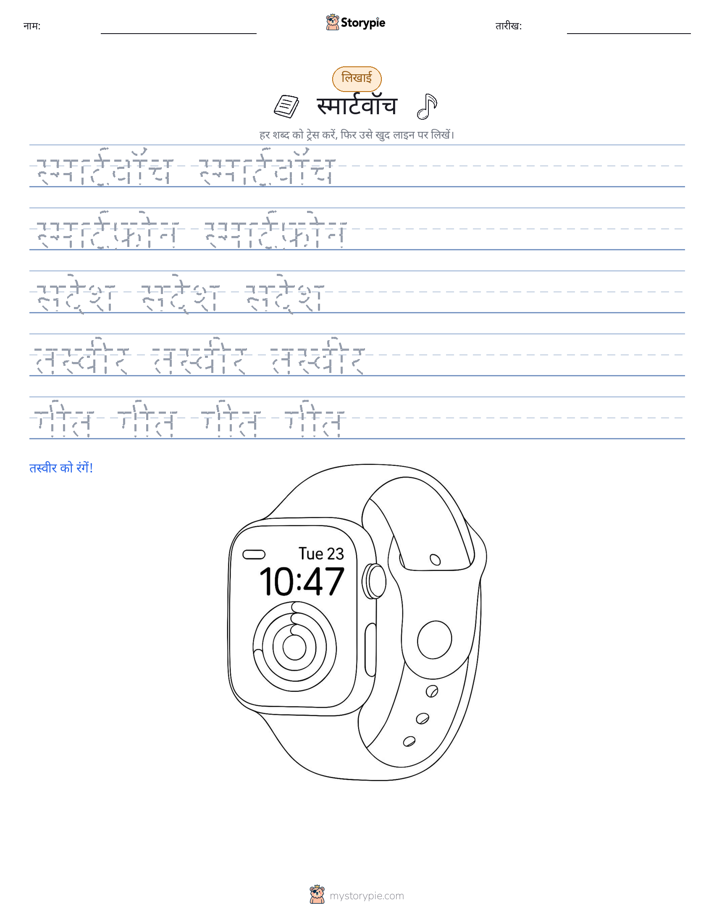 नाम:
Storypie
तारीख:
लिखाई
स्मार्टवॉच
हर शब्द को ट्रेस करें, फिर उसे खुद लाइन पर लिखें।
स्मार्टवॉच स्मार्टवॉच
स्मार्टफ़ोन स्मार्टफ़ोन
संदेश संदेश संदेश
तस्वीर तस्वीर तस्वीर
गीत गीत गीत गीत
तस्वीर को रंगें!
Tue 23
10:47
mystorypie.com